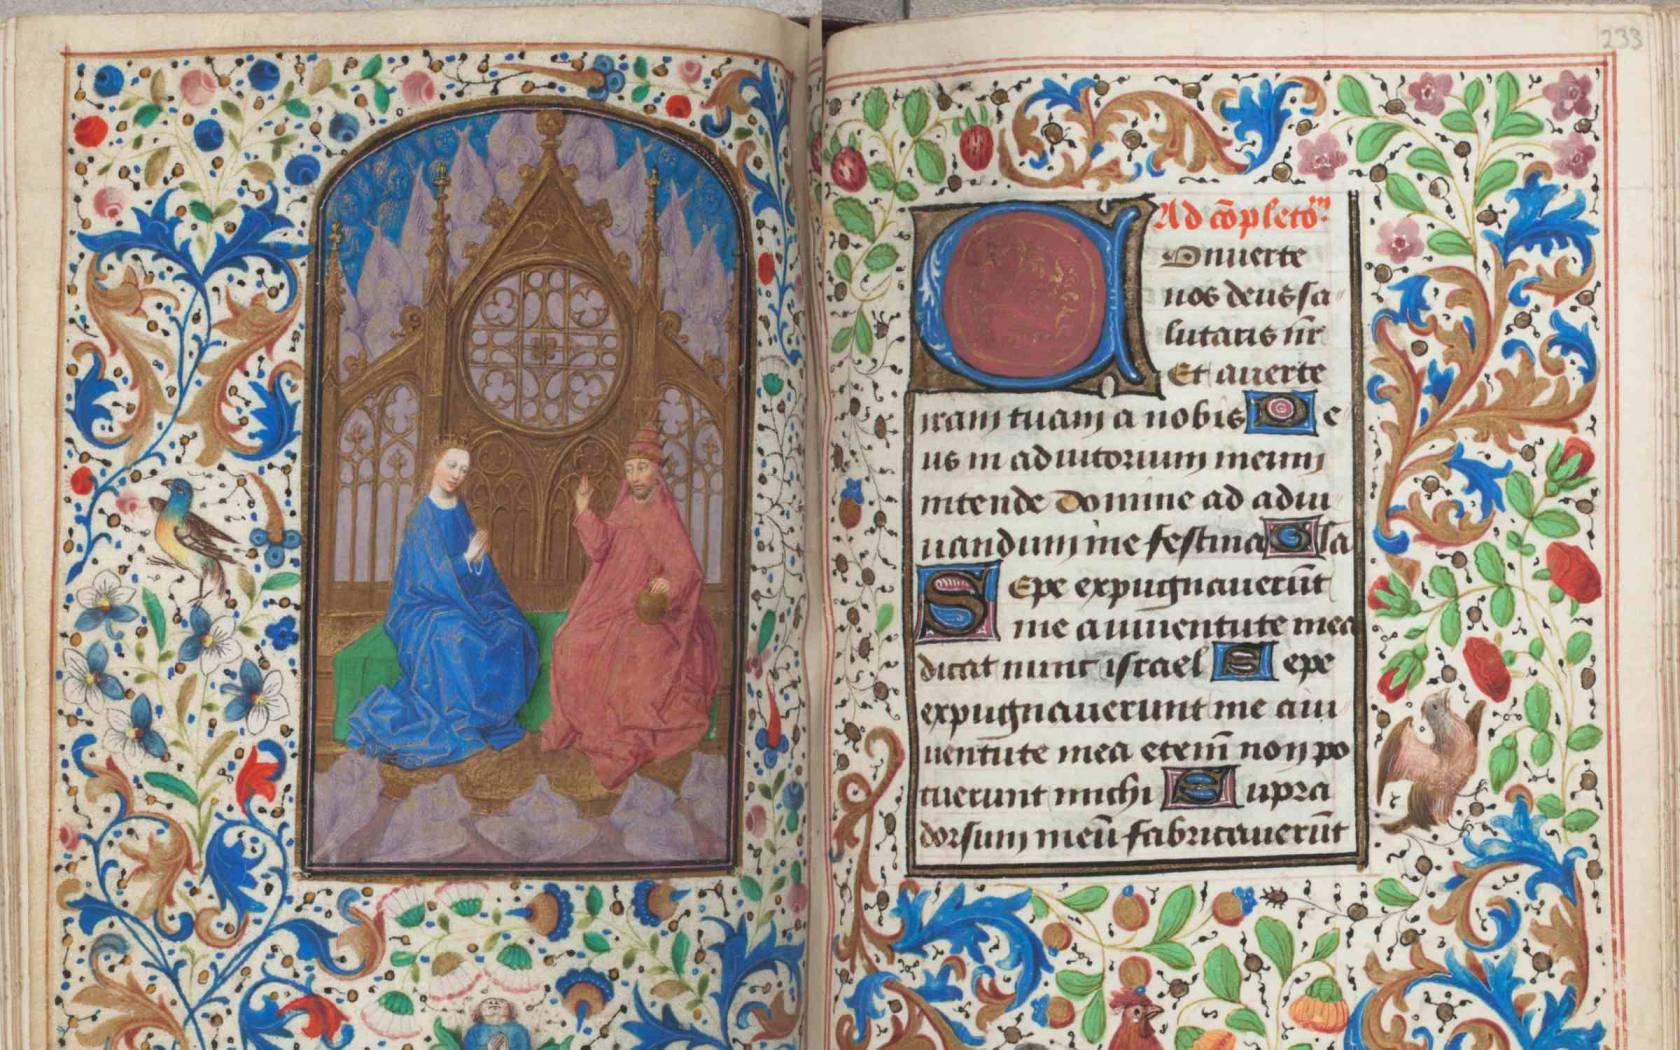 233
Ad cōpletoꝝ
Conuerte
nos deus sa
lutaris nr̄
Et auerte
iram tuam a nobis De
us in adiutorium meum
intende Domine ad adiu
uandum me festina Gla
Sepe expugnauerūt
me a iuuentute mea
dicat nunc israel Sepe
expugnauerunt me a iu
uentute mea etem̄ non po
tuerunt michi Supra
dorsum meū fabricauerūt